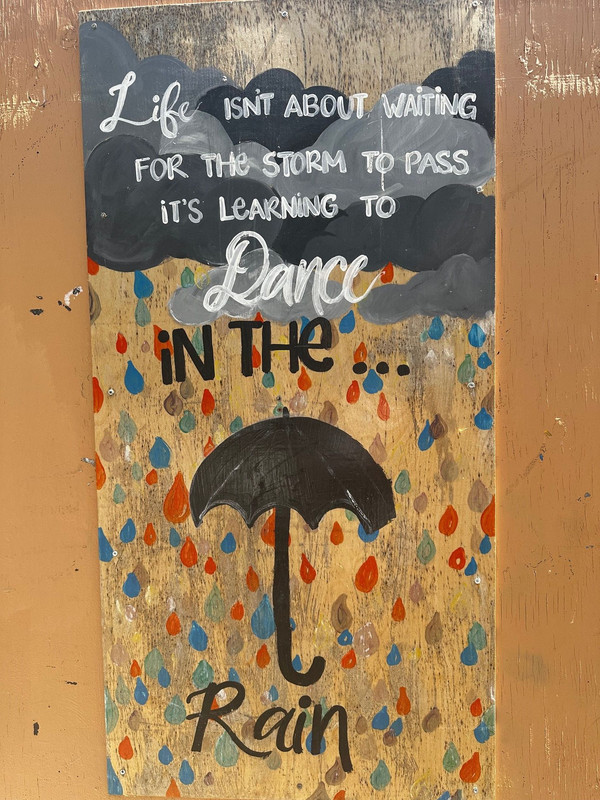 Life ISN'T ABOUT WAITING
FOR THE STORM TO PASS
IT'S LEARNING TO
Dance
IN THE...
Rain